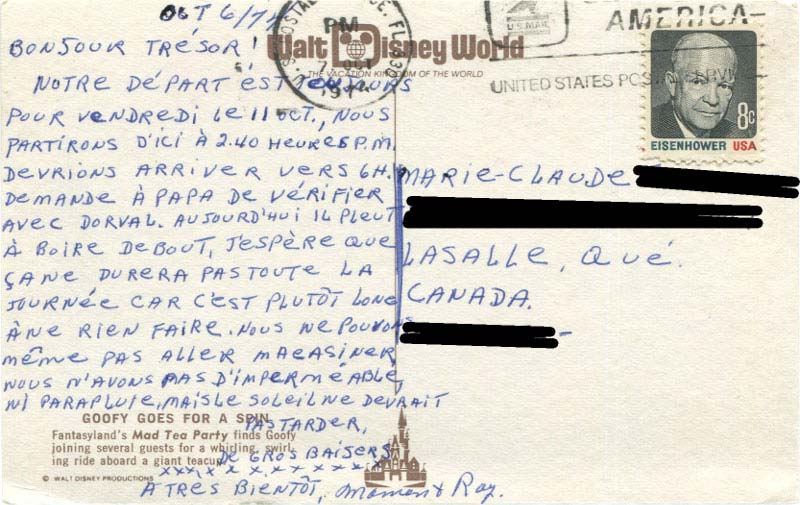 OCT 6/77
BONJOUR TRÉSOR!
NOTRE DÉPART EST TOUJOURS
POUR VENDREDI LE 11 OCT., NOUS
PARTIRONS D'ICI À 2.40 HEURES P.M.
DEVRIONS ARRIVER VERS 6H.
DEMANDE À PAPA DE VÉRIFIER
AVEC DORVAL. AUJOURD'HUI IL PLEUT
À BOIRE DEBOUT, J'ESPÈRE QUE
ÇA NE DURERA PAS TOUTE LA
JOURNÉE CAR C'EST PLUTÔT LONG
À NE RIEN FAIRE. NOUS NE POUVONS
MÊME PAS ALLER MAGASINER
NOUS N'AVONS PAS D'IMPERMÉABLE,
NI PARAPLUIE, MAIS LE SOLEIL NE DEVRAIT
PAS TARDER,
DE GROS BAISERS
x x x x x x x x x x x x
À TRES BIENTÔT, Maman & Ray.
Walt Disney World
THE VACATION KINGDOM OF THE WORLD
GOOFY GOES FOR A SPIN
Fantasyland's Mad Tea Party finds Goofy
joining several guests for a whirling, swirl-
ing ride aboard a giant teacup.
© WALT DISNEY PRODUCTIONS
PM
OCT
U.S. MAIL
AMERICA
UNITED STATES POSTAL SERVICE
8c
EISENHOWER USA
MARIE-CLAUDE
LASALLE, QUÉ.
CANADA.